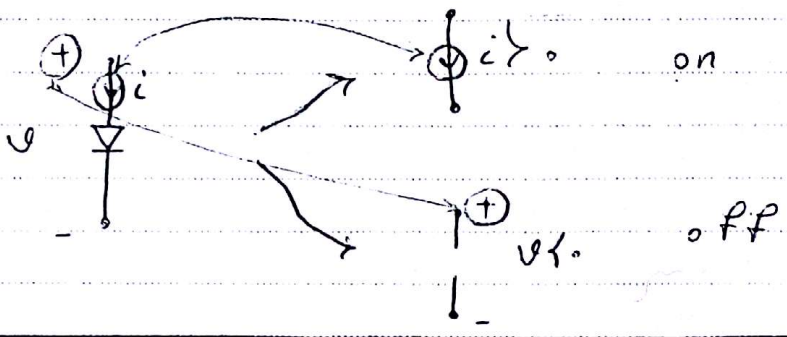 + i i > 0 on
v
- + v < 0 off
-